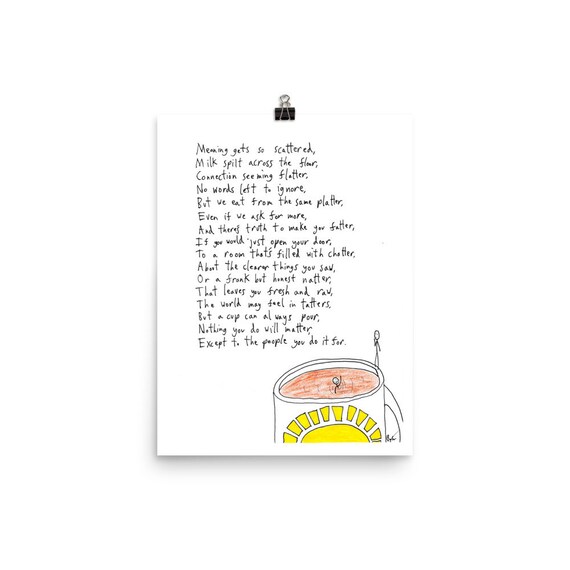 Meaning gets so scattered,
Milk spilt across the floor,
Connection seeming flatter,
No words left to ignore,
But we eat from the same platter,
Even if we ask for more,
And theres truth to make you fatter,
If you would just open your door,
To a room thats filled with chatter,
About the clearer things you saw,
Or a frank but honest natter,
That leaves you fresh and raw,
The world may feel in tatters,
But a cup can always pour,
Nothing you do will matter,
Except to the people you do it for.